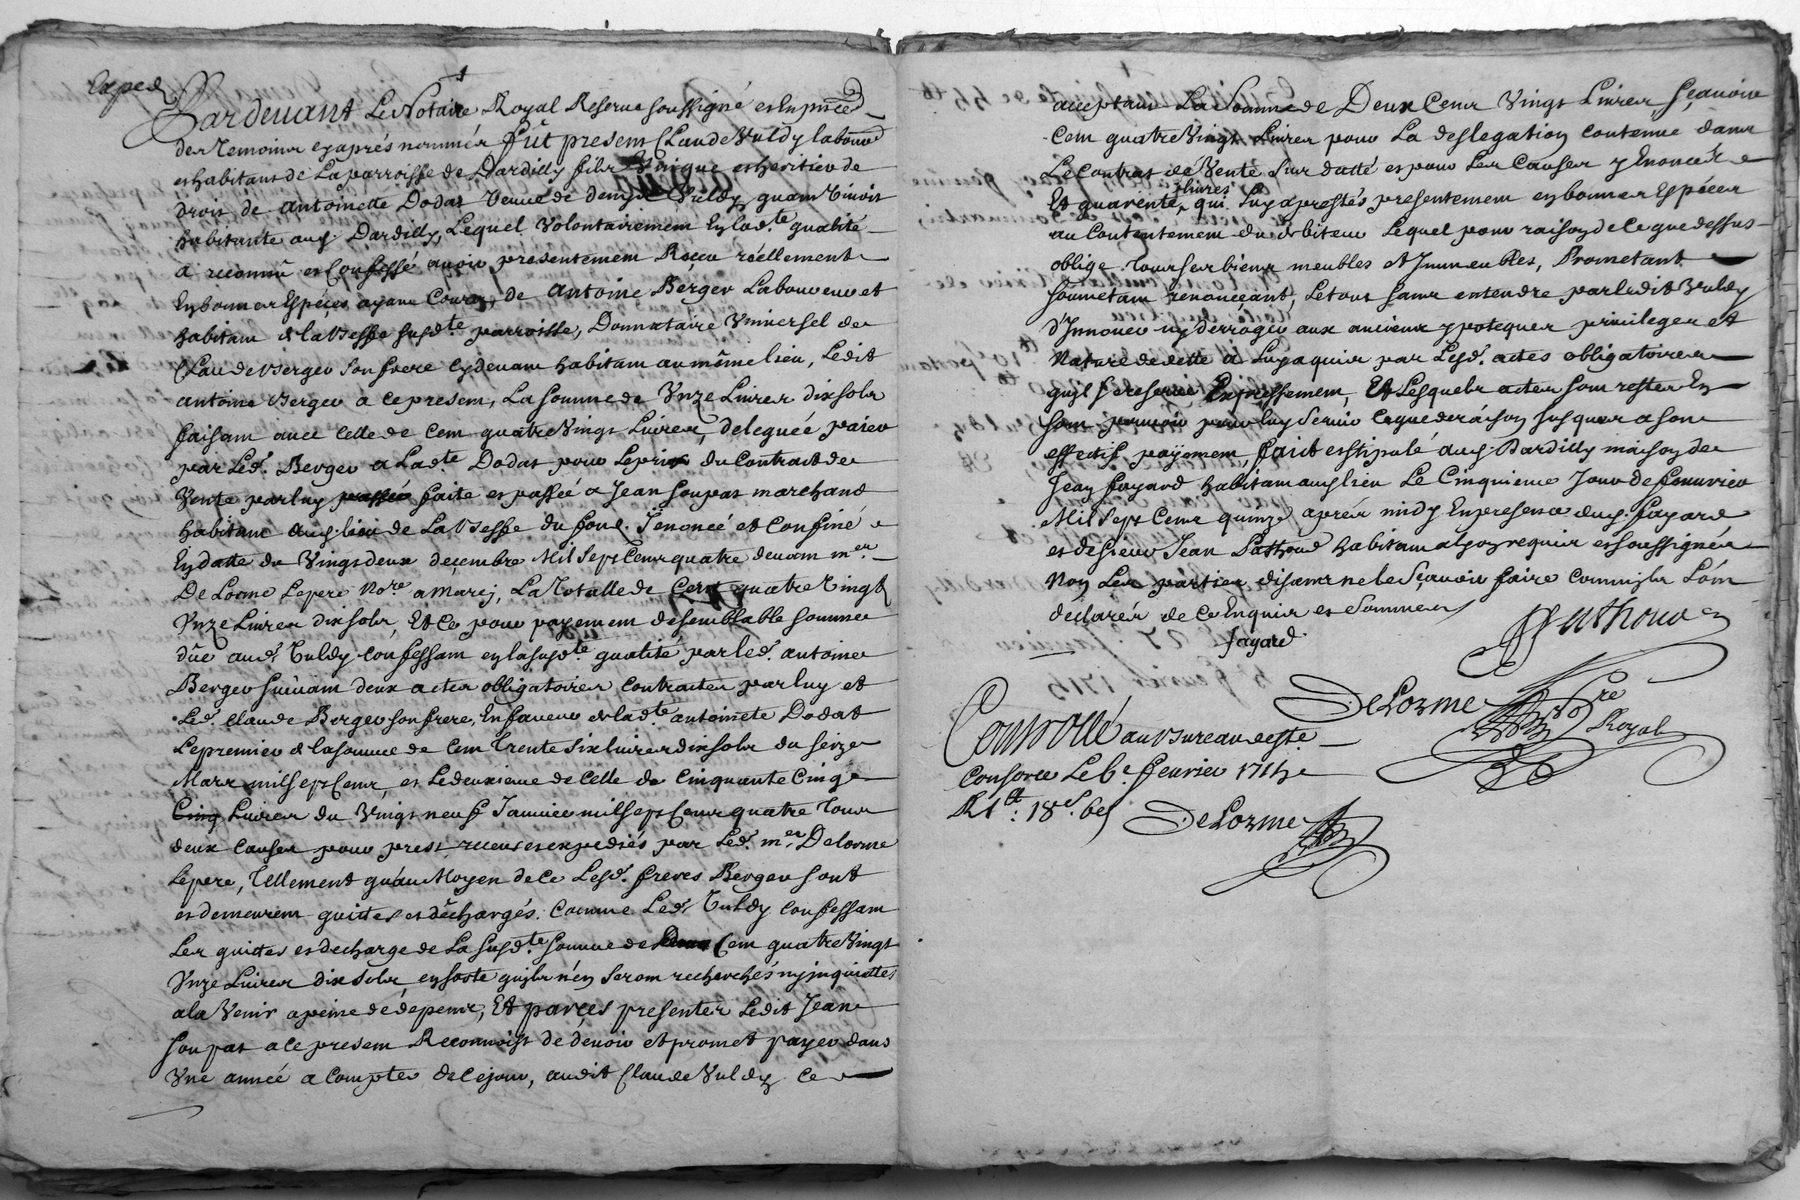 Exped
Pardevant Le Notaire Royal Reservé soussigné et En pnce
des Temoins cy après nommés fût present Claude Vuldy laboure
et habitant de La parroisse de Dardilly fils Unique et heritier de
droit de Antoinette Dodat Veuve de denys Vuldy quand Vivoit
habitante aud Dardilly, Lequel Volontairement En lad.te qualité
a reconnû et Confessé avoir presentement Receu réellement
En bonnes Espèces ayant Cours, de Antoine Berger Laboureur et
habitant de la Besse susd.te parroisse, Donnataire Universel de
Claude Berger son frere cy devant habitant au même lieu, Ledit
antoine Berger a ce present, La somme de Unze Livres dix sols
faisant avec Celle de Cent quatre Vingt Livres, deleguée paier
par Led. Berger a Lad.te Dodat pour Le prix du Contract de
Vente par luy passée faite et passée a Jean soupat marchand
habitant aud lieu de La Besse du fond y Enoncé et Confiné
En datte du Vingt deux decembre Mil Sept Cent quatre devant m.er
De Lorme Le pere No.re a Marcy, La Totalle de Cent quatre Vingt
Unze Livres dix sols, Et Ce pour payement de semblable somme
düe aud. Vuldy confessant en la susd.te qualité par led. antoine
Berger suivant deux actes obligatoires contractés par luy et
Led. Claude Berger son frere, En faveur de lad.te antoinete Dodat
Le premier de la somme de Cent Trente six livres dix sols du seize
Mars mil sept Cent, et Le deuxieme de Celle de Cinquante Cinq
Cinq Livres du Vingt neuf Janvier mil sept Cent quatre Tous
deux Causés pour prest, receus et expediés par Led. m.er Delorme
Le pere, Tellement qu'au Moyen de ce Lesd. freres Berger sont
et demeurent quittes et dêchargés. Comme Led. Vuldy confessant
Les quitte et decharge de La susd.te somme de Cent quatre Vingt
Unze Livres dix sols, en sorte qu'ils n'en seront recherchés ny inquiettes
a la Venir a peine de dépens, Et par ces presentes Ledit Jean
soupat a ce present Reconnoist de devoir et promet payer dans
Une année a Compter de ce jour, audit Claude Vuldy Ce
acceptant La Somme de Deux Cent Vingt Livres, sçavoir
Cent quatre Vingt Livres pour La deslegation contenüe dans
Le Contrat de Vente Sus datté et pour Les Causes y Enoncés
Et quarente livres qui luy a prestés presentement en bonnes Espèces
au Contentement du debiteur Lequel pour raison de Ce que dessus
oblige Tous ses biens meubles et Immeubles, Prometant
soumetant renonceant, Le tout sans entendre par ledit Vuldy
d'Innover ny derroger aux anciens ypoteques privileges et
Nature de dette a Luy aquis par Lesd. actes obligatoires
qu'il se reserve Expressement, Et Lesquels actes sont restes En
son pouvoir pour luy Servir ce que de raison jusques a son
effectif payement, fait et stipulé aud Dardilly maison de
Jean fayard habitant aud lieu Le Cinquieme Jour de fevvrier
Mil Sept Cent quinze aprés midy En presence dud. fayard
et de sieur Jean Pathoud habitant a Lyon requis et soussignés
Non Les parties disants ne le Sçavoir faire Comm'ils L'ont
declarés de Ce Enquis et sommés
fayard
Pathoud
DeLorme No.re Royal
Controllé au Bureau de St.
Consorce Le 6.e fevrier 1715
R 1 lt: 18 s. 6 d
DeLorme